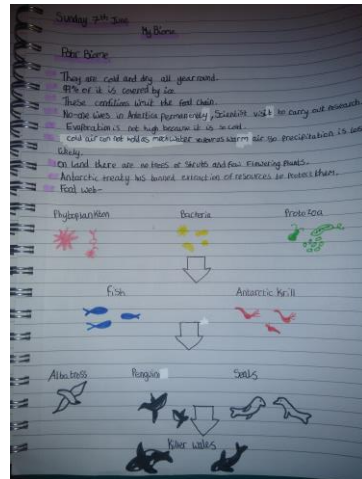 Sunday 7th June
My Biome
Polar Biome
They are cold and dry all year round.
of it is covered by ice
These conditions limit the food chain.
No-one lives in Antartica Permanently, Scientist visit to carry out research
Evaporation is not high because it is so cold.
cold air can not hold as much water warm air so precipitation is
likely.
On land there are no trees or Shrubs and few Flowering Plants.
Antarctic treaty has banned extraction of resources to Protect them.
Food web-
Phytoplankton
Bacteria
Protozoa
Fish
Antarctic Krill
Albatross
Penguins
Seals
Killer wales